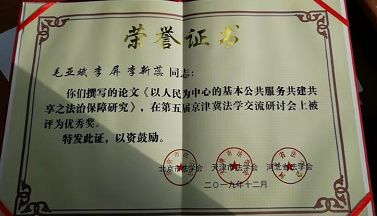 荣誉证书
毛亚斌 李屏 李新蕊 同志：
你们撰写的论文《以人民为中心的基本公共服务共建共
享之法治保障研究》，在第五届京津冀法学交流研讨会上被
评为优秀奖。
特发此证，以资鼓励。
北京市法学会 天津市法学会 河北省法学会
二〇一九年十二月